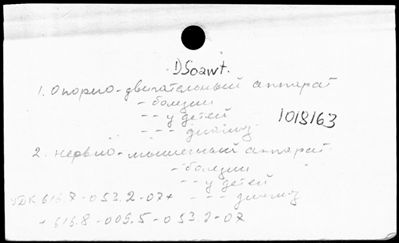 DSoawt.
1. Опорно-двигательный аппарат
- болезни
- - у детей
- - - диагноз
1018163
2. Нервно-мышечный аппарат
- болезни
- - у детей
- - - диагноз
УДК 616.7-053.2-07+
+ 616.8-009.5-053.2-07